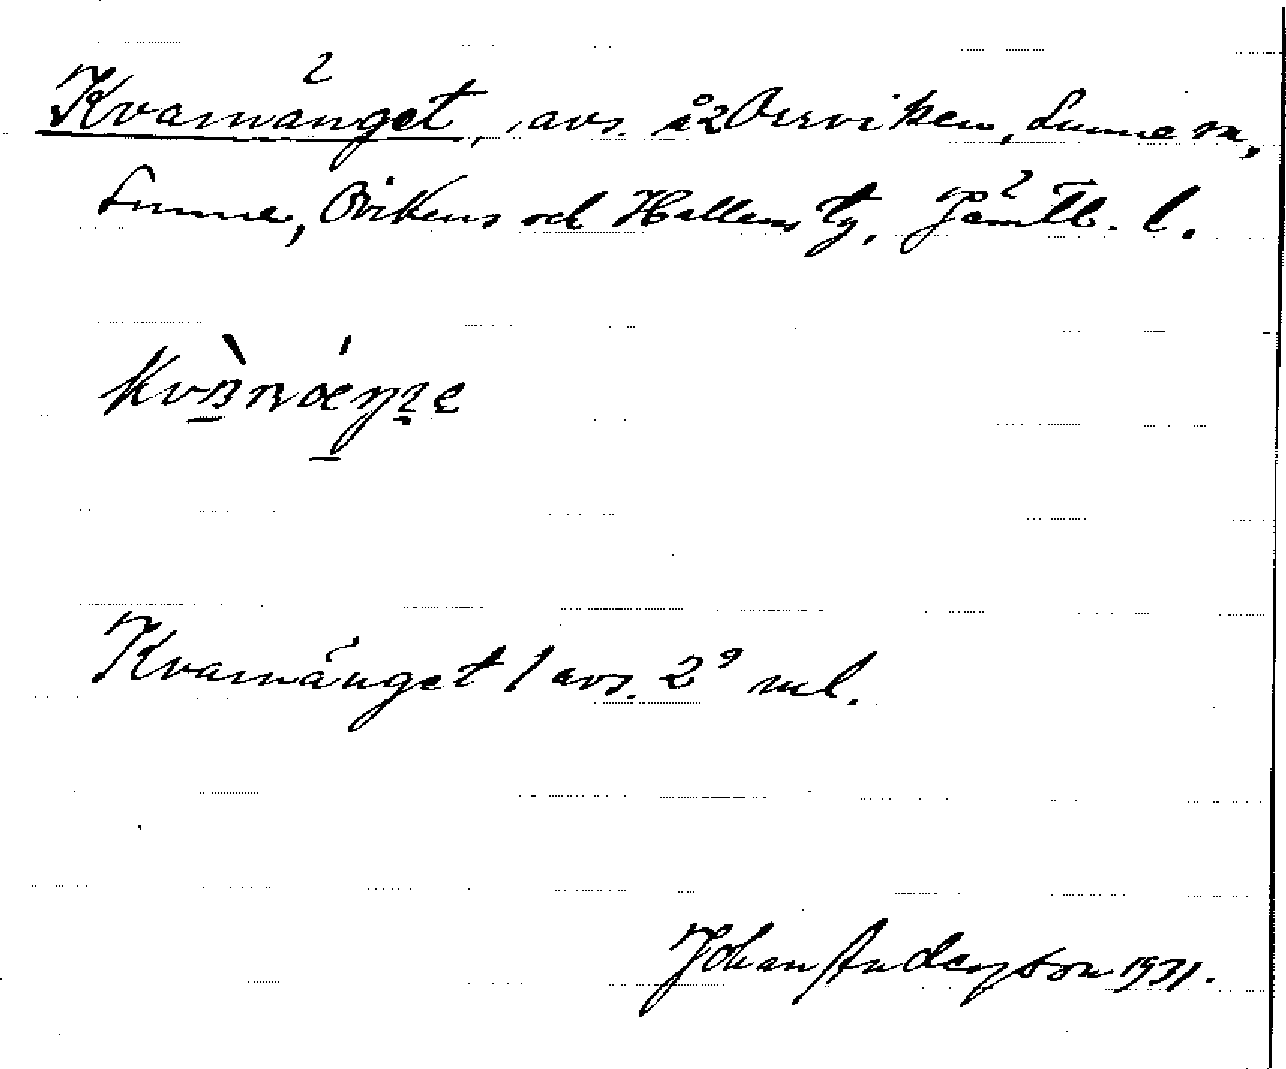 Kvarnänget, avs. å Överviken, Sunne sn,
Sunne, Ovikens och Hallens tg, Jämtl. l.
Kvarnänget / avs. 2° ml.
Johan Anderson 1931.